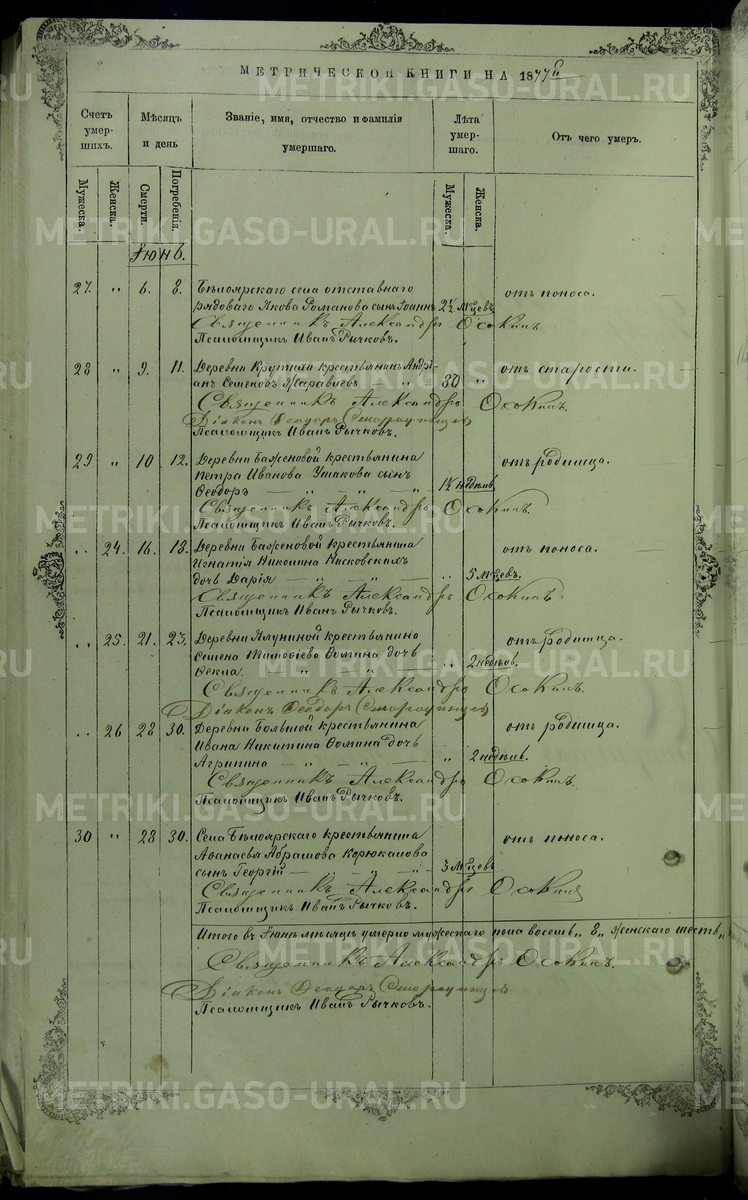 МЕТРИЧЕСКОЙ КНИГИ НА 1877 г.
Счетъ умер-шихъ.
Мѣсяцъ и день
Званіе, имя, отчество и фамилія умершаго.
Лѣта умер-шаго.
Отъ чего умеръ.
Мужеска.
Женска.
Смерти.
Погребенія.
Мужеска.
Женска.
Іюнь.
27. " 6. 8. Бѣлоярскаго села отставнаго
рядоваго Якова Романова сынъ Іоаннъ 2½ м-цевъ отъ поноса.
Священникъ Александръ Осокинъ.
Псаломщикъ Иванъ Рычковъ.
28 " 9. 11. Деревни Крутихи крестьянинъ Андрі-
анъ Семеновъ — " 80 " отъ старости.
Священникъ Александръ Осокинъ.
Діаконъ Ѳеодоръ
Псаломщикъ Иванъ Рычковъ.
29 " 10 12. Деревни Баженовой крестьянина
Петра Иванова Ушакова сынъ
Ѳеодоръ — " — " — " 1½ недѣль отъ родимца.
Священникъ Александръ Осокинъ.
Псаломщикъ Иванъ Рычковъ.
" 24. 16. 18. Деревни Баженовой крестьянина
Игнатія Никонова Нисковскихъ
дочь Дарія — " — " — " 5 м-цевъ. отъ поноса.
Священникъ Александръ Осокинъ.
Псаломщикъ Иванъ Рычковъ.
" 25. 21. 23. Деревни крестьянина
Семена Тимоѳіева Ѳомина дочь
Ѳекла — " — " — " 2 недѣль. отъ родимца.
Священникъ Александръ Осокинъ.
Діаконъ Ѳеодоръ
" 26 28 30. Деревни Большой крестьянина
Ивана Никитина Ѳомина дочь
Агрипина — " — " — " 2 недѣль. отъ родимца.
Священникъ Александръ Осокинъ.
Псаломщикъ Иванъ Рычковъ.
30 " 28 30. Села Бѣлоярскаго крестьянина
Аѳанасья Абрамова Корюкалова
сынъ Георгій — " — " — " 3 м-цевъ отъ поноса.
Священникъ Александръ Осокинъ
Псаломщикъ Иванъ Рычковъ.
Итого въ Іюнѣ мѣсяцѣ умерло мужескаго пола восемь „8„ женскаго шесть„
Священникъ Александръ Осокинъ.
Діаконъ Ѳеодоръ
Псаломщикъ Иванъ Рычковъ.
METRIKI.GASO-URAL.RU